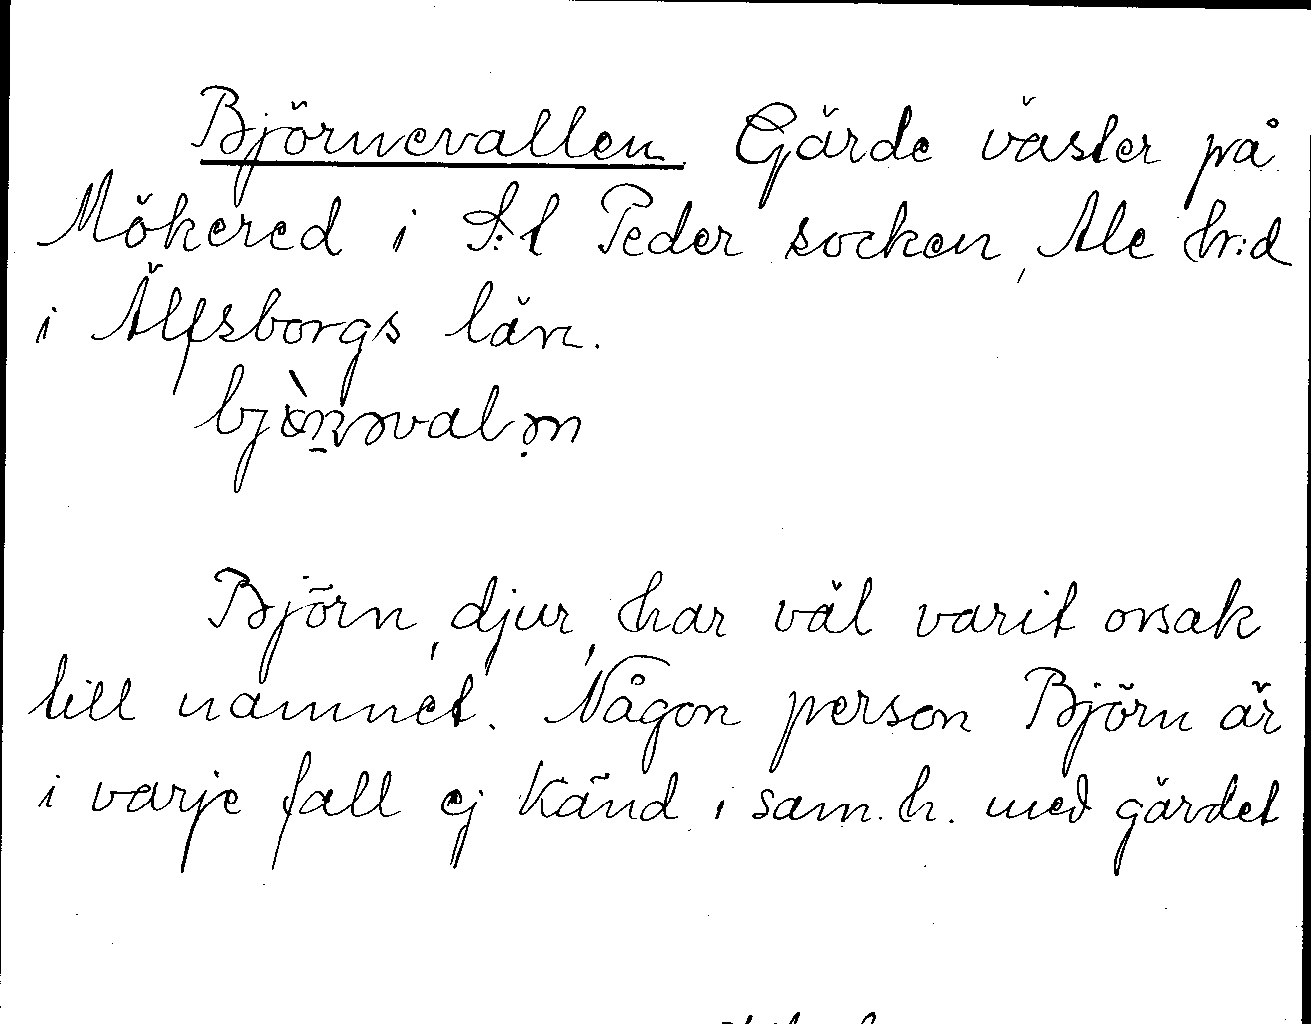 Björnevallen Gärde väster på
Mökered i S:t Peder socken, Ale hr:d
i Älfsborgs län.
bjön̠əvalə̣n
Björn, djur, har väl varit orsak
till namnet. Någon person Björn är
i varje fall ej känd i sam.h. med gärdet